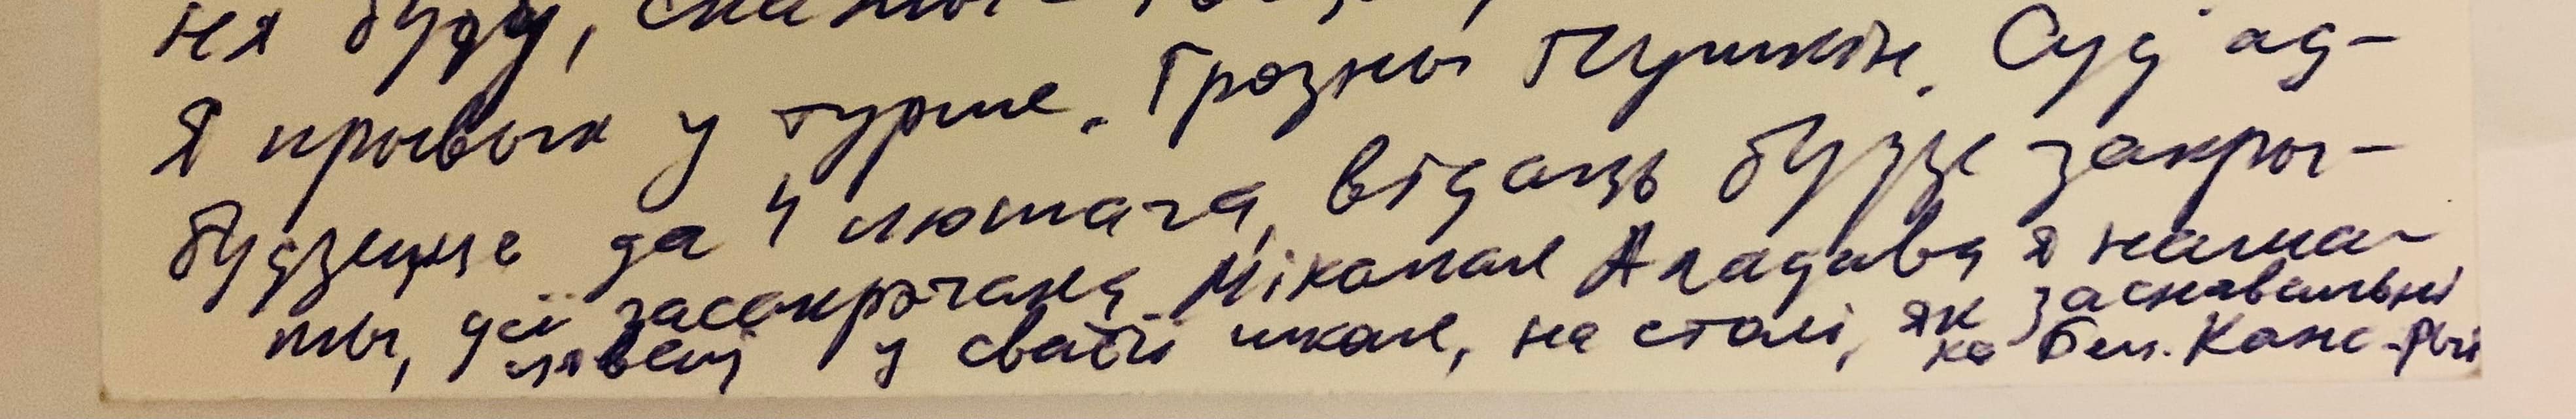 ня буду,
Я прывык у турме. Грозны Пушкін. Суд ад-
будзецца да 4 лютага, відаць будзе закры-
ты, усё засакрэчана. Мікалая Аладава я нама-
ляваў у сваёй школе, на столі, як заснавальні
ка Бел. Канс-рыі